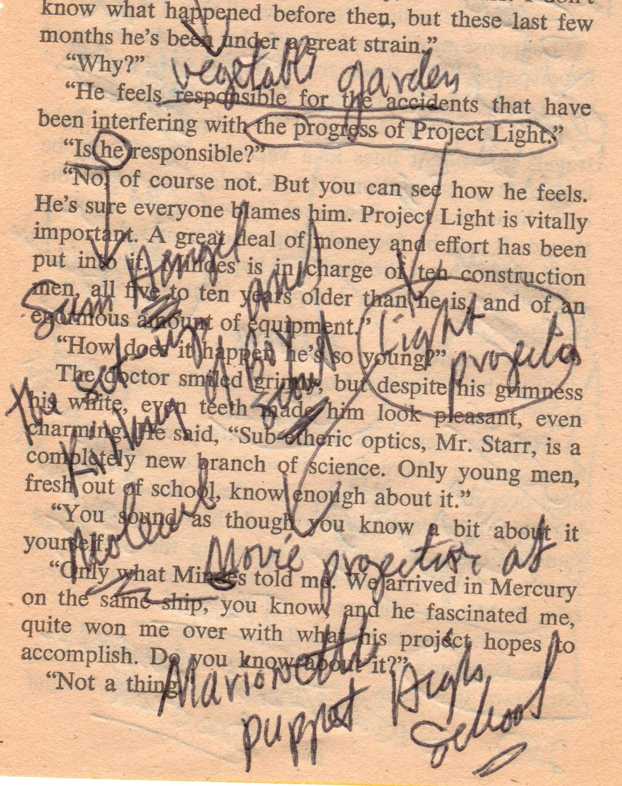 know what happened before then, but these last few
months he's been under a great strain."
"Why?"
vegetable garden
"He feels responsible for the accidents that have
been interfering with the progress of Project Light."
"Is he responsible?"
"No, of course not. But you can see how he feels.
He's sure everyone blames him. Project Light is vitally
important. A great deal of money and effort has been
put into it. Mindes is in charge of ten construction
men, all five to ten years older than he is, and of an
enormous amount of equipment."
Light
projectio
"How does it happen he's so young?"
The doctor smiled grimly, but despite his grimness
his white, even teeth made him look pleasant, even
charming. He said, "Sub-etheric optics, Mr. Starr, is a
completely new branch of science. Only young men,
fresh out of school, know enough about it."
"You sound as though you know a bit about it
yourself."
the set-up and
Killing of Boy
Scout
Movie projection at
"Only what Mindes told me. We arrived in Mercury
on the same ship, you know, and he fascinated me,
quite won me over with what his project hopes to
accomplish. Do you know about it?"
"Not a thing."
Marionette
puppet High
School